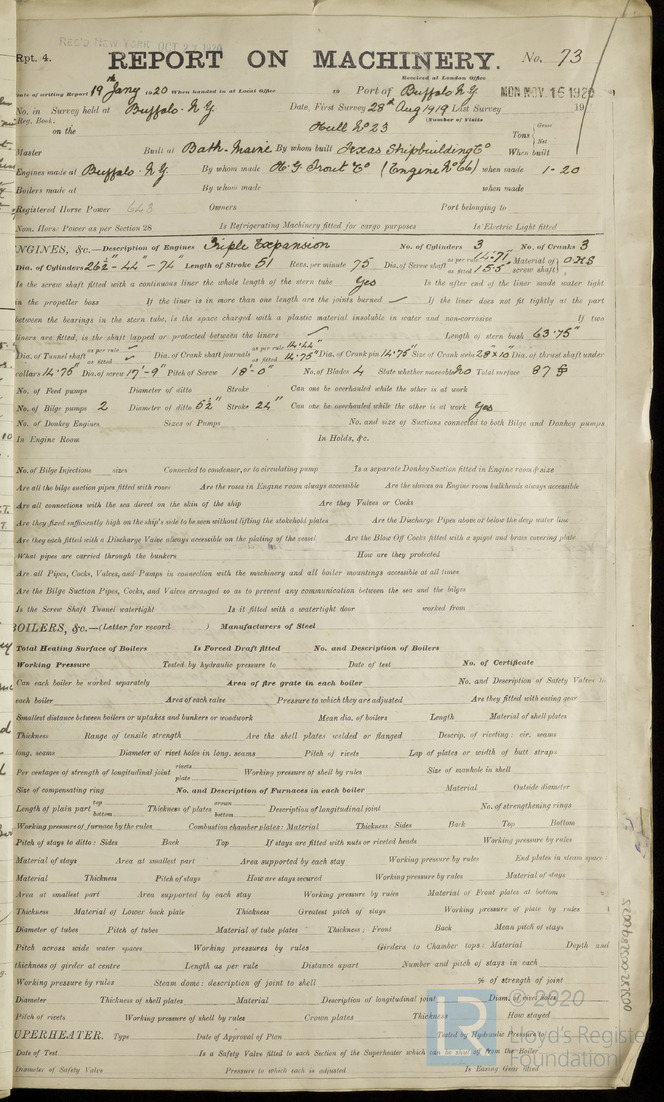 REC'D NEW YORK OCT 27 1920
Rpt. 4. REPORT ON MACHINERY. No. 73
Received at London Office
Date of writing Report 19th Jany 1920 When handed in at Local Office 19 Port of Buffalo N.Y. MON. NOV. 15 1920
No. in Survey held at Buffalo. N.Y. Date, First Survey 28th Aug 1919 Last Survey 19
Reg. Book. (Number of Visits
on the Hull No 23 Tons { Gross Net
Master Built at Bath-Maine By whom built Texas Shipbuilding Co When built
Engines made at Buffalo. N.Y. By whom made H G Trout Co (Engine No 66) when made 1-20
Boilers made at By whom made when made
Registered Horse Power 643 Owners Port belonging to
Nom. Horse Power as per Section 28 Is Refrigerating Machinery fitted for cargo purposes Is Electric Light fitted
ENGINES, &c.—Description of Engines Triple Expansion No. of Cylinders 3 No. of Cranks 3
Dia. of Cylinders 26½" - 44" - 74" Length of Stroke 51 Revs. per minute 75 Dia. of Screw shaft as per rule 14.71 as fitted 15.5 Material of screw shaft) O.H.S
Is the screw shaft fitted with a continuous liner the whole length of the stern tube Yes Is the after end of the liner made water tight
in the propeller boss If the liner is in more than one length are the joints burned ✓ If the liner does not fit tightly at the part
between the bearings in the stern tube, is the space charged with a plastic material insoluble in water and non-corrosive If two
liners are fitted, is the shaft lapped or protected between the liners ✓ Length of stern bush 63.75"
Dia. of Tunnel shaft as per rule as fitted ✓ Dia. of Crank shaft journals as per rule 14.44" as fitted 14.75" Dia. of Crank pin 14.75" Size of Crank webs 28" x 10" Dia. of thrust shaft under
collars 14.75" Dia. of screw 17'-9" Pitch of Screw 18'-0" No. of Blades 4 State whether moveable No Total surface 87
No. of Feed pumps Diameter of ditto Stroke Can one be overhauled while the other is at work
No. of Bilge pumps 2 Diameter of ditto 5½" Stroke 24" Can one be overhauled while the other is at work Yes
No. of Donkey Engines Sizes of Pumps No. and size of Suctions connected to both Bilge and Donkey pumps
In Engine Room In Holds, &c.
No. of Bilge Injections sizes Connected to condenser, or to circulating pump Is a separate Donkey Suction fitted in Engine room & size
Are all the bilge suction pipes fitted with roses Are the roses in Engine room always accessible Are the sluices on Engine room bulkheads always accessible
Are all connections with the sea direct on the skin of the ship Are they Valves or Cocks
Are they fixed sufficiently high on the ship's side to be seen without lifting the stokehold plates Are the Discharge Pipes above or below the deep water line
Are they each fitted with a Discharge Valve always accessible on the plating of the vessel Are the Blow Off Cocks fitted with a spigot and brass covering plate
What pipes are carried through the bunkers How are they protected
Are all Pipes, Cocks, Valves, and Pumps in connection with the machinery and all boiler mountings accessible at all times
Are the Bilge Suction Pipes, Cocks, and Valves arranged so as to prevent any communication between the sea and the bilges
Is the Screw Shaft Tunnel watertight Is it fitted with a watertight door worked from
BOILERS, &c.—(Letter for record ) Manufacturers of Steel
Total Heating Surface of Boilers Is Forced Draft fitted No. and Description of Boilers
Working Pressure Tested by hydraulic pressure to Date of test No. of Certificate
Can each boiler be worked separately Area of fire grate in each boiler No. and Description of Safety Valves to
each boiler Area of each valve Pressure to which they are adjusted Are they fitted with easing gear
Smallest distance between boilers or uptakes and bunkers or woodwork Mean dia. of boilers Length Material of shell plates
Thickness Range of tensile strength Are the shell plates welded or flanged Descrip. of riveting: cir. seams
long. seams Diameter of rivet holes in long. seams Pitch of rivets Lap of plates or width of butt straps
Per centages of strength of longitudinal joint rivets plate Working pressure of shell by rules Size of manhole in shell
Size of compensating ring No. and Description of Furnaces in each boiler Material Outside diameter
Length of plain part top bottom Thickness of plates crown bottom Description of longitudinal joint No. of strengthening rings
Working pressure of furnace by the rules Combustion chamber plates: Material Thickness: Sides Back Top Bottom
Pitch of stays to ditto: Sides Back Top If stays are fitted with nuts or riveted heads Working pressure by rules
Material of stays Area at smallest part Area supported by each stay Working pressure by rules End plates in steam space:
Material Thickness Pitch of stays How are stays secured Working pressure by rules Material of stays
Area at smallest part Area supported by each stay Working pressure by rules Material of Front plates at bottom
Thickness Material of Lower back plate Thickness Greatest pitch of stays Working pressure of plate by rules
Diameter of tubes Pitch of tubes Material of tube plates Thickness: Front Back Mean pitch of stays
Pitch across wide water spaces Working pressures by rules Girders to Chamber tops: Material Depth and
thickness of girder at centre Length as per rule Distance apart Number and pitch of stays in each
Working pressure by rules Steam dome: description of joint to shell % of strength of joint
Diameter Thickness of shell plates Material Description of longitudinal joint Diam. of rivet holes
Pitch of rivets Working pressure of shell by rules Crown plates Thickness How stayed
SUPERHEATER. Type Date of Approval of Plan Tested by Hydraulic Pressure to
Date of Test Is a Safety Valve fitted to each Section of the Superheater which can be shut off from the Boiler
Diameter of Safety Valve Pressure to which each is adjusted Is Easing Gear fitted
© 2020
Lloyd's Register
Foundation